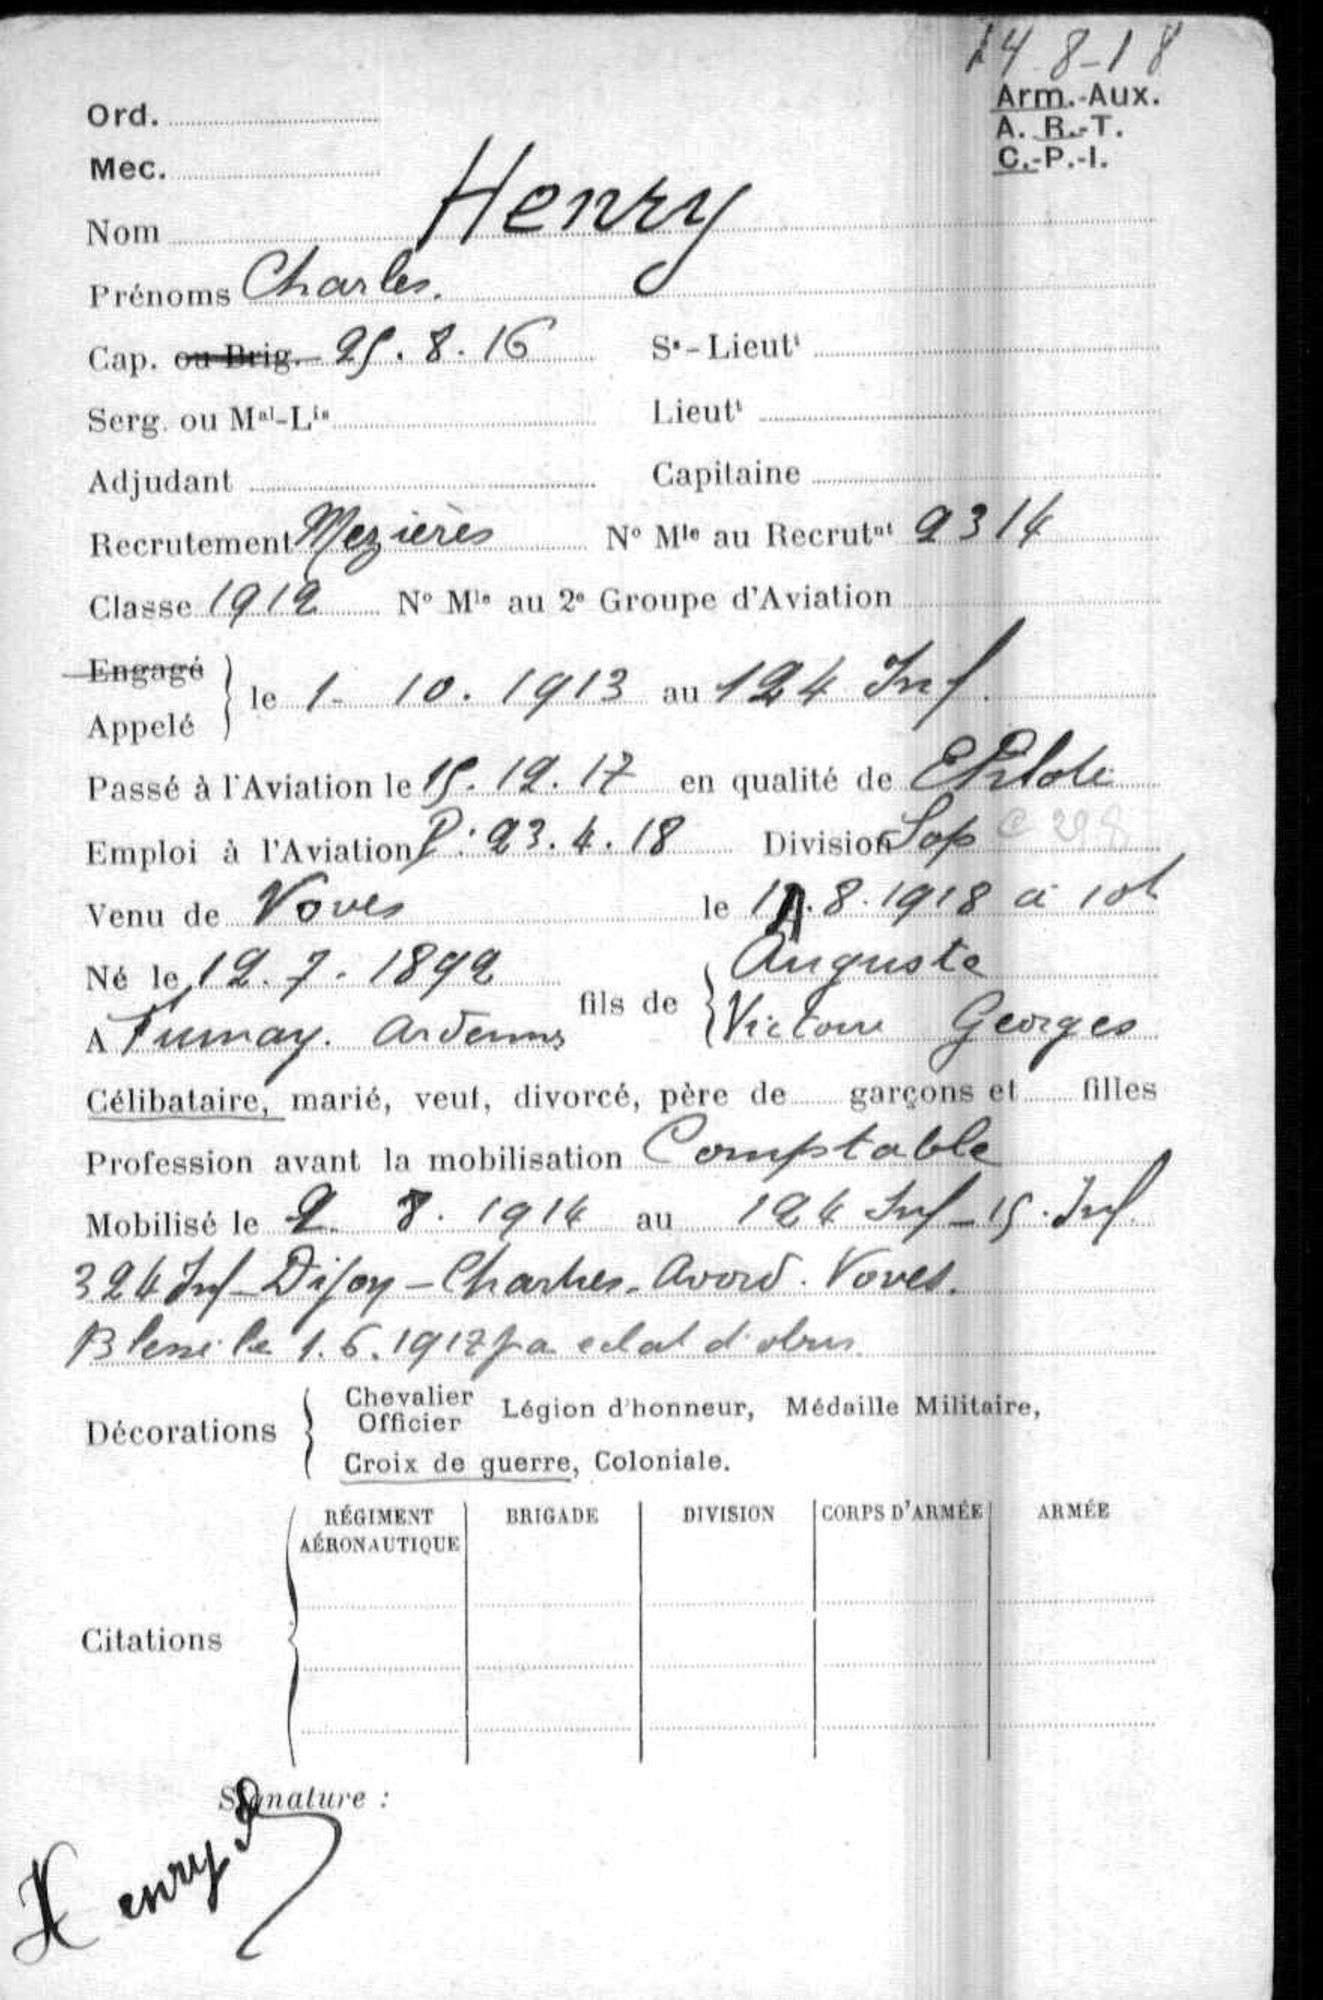 14-8-18
Arm.-Aux.
A. R.-T.
C.-P.-I.
Ord.
Mec.
Nom Henry
Prénoms Charles.
Cap. ou Brig. 25.8.16 Sˢ-Lieutᵗ
Serg. ou Mᵃˡ-Lⁱˢ Lieutᵗ
Adjudant Capitaine
Recrutement Mezières Nº Mˡᵉ au Recrutⁿᵗ 2314
Classe 1912 Nº Mˡᵉ au 2ᵉ Groupe d'Aviation
Engagé
Appelé } le 1-10.1913 au 124 Inf.
Passé à l'Aviation le 15.12.17 en qualité de EPilote
Emploi à l'Aviation P: 23.4.18 Division Sop
Venu de Voves le 8.1918 à 10h
Né le 12.7.1892 fils de { Auguste
A Fumay. Ardennes Victoire Georges
Célibataire, marié, veuf, divorcé, père de garçons et filles
Profession avant la mobilisation Comptable
Mobilisé le 2. 8. 1914 au 124 Inf-15. Inf.
324 Inf-Dijon-Chartres-Avord. Voves.
Blessé le 1.6.1917 pa eclat d'obus.
Décorations { Chevalier Officier Légion d'honneur, Médaille Militaire,
Croix de guerre, Coloniale.
RÉGIMENT AÉRONAUTIQUE BRIGADE DIVISION CORPS D'ARMÉE ARMÉE
Citations
Signature :
Henry